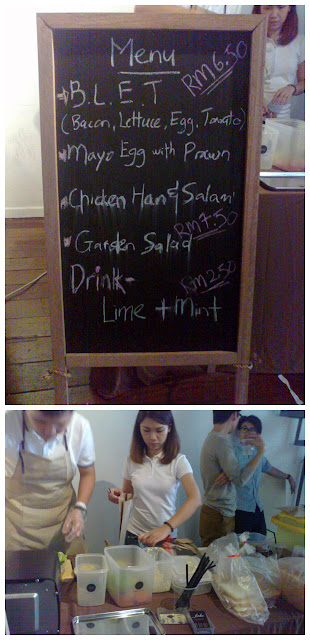 Menu
RM6.50
B.L.E.T
(Bacon, Lettuce, Egg, Tomato)
Mayo Egg with Prawn
Chicken Ham & Salami
RM7.50
Garden Salad
Drink-
RM2.50
Lime + Mint